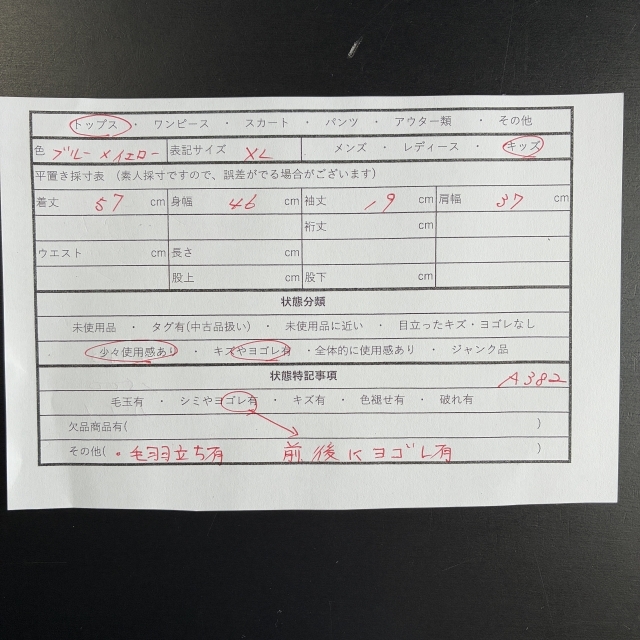 トップス ・ ワンピース ・ スカート ・ パンツ ・ アウター類 ・ その他
色 ブルー×イエロー 表記サイズ XL メンズ ・ レディース ・ キッズ
平置き採寸表 (素人採寸ですので、誤差がでる場合がございます)
着丈 57 cm 身幅 46 cm 袖丈 19 cm 肩幅 37 cm
裄丈 cm
ウエスト cm 長さ cm
股上 cm 股下 cm
状態分類
未使用品 ・ タグ有(中古品扱い) ・ 未使用品に近い ・ 目立ったキズ・ヨゴレなし
少々使用感あり ・ キズやヨゴレ有 ・全体的に使用感あり ・ ジャンク品
状態特記事項 A382
毛玉有 ・ シミやヨゴレ有 ・ キズ有 ・ 色褪せ有 ・ 破れ有
欠品商品有( )
その他( ・毛羽立ち有 前後にヨゴレ有 )